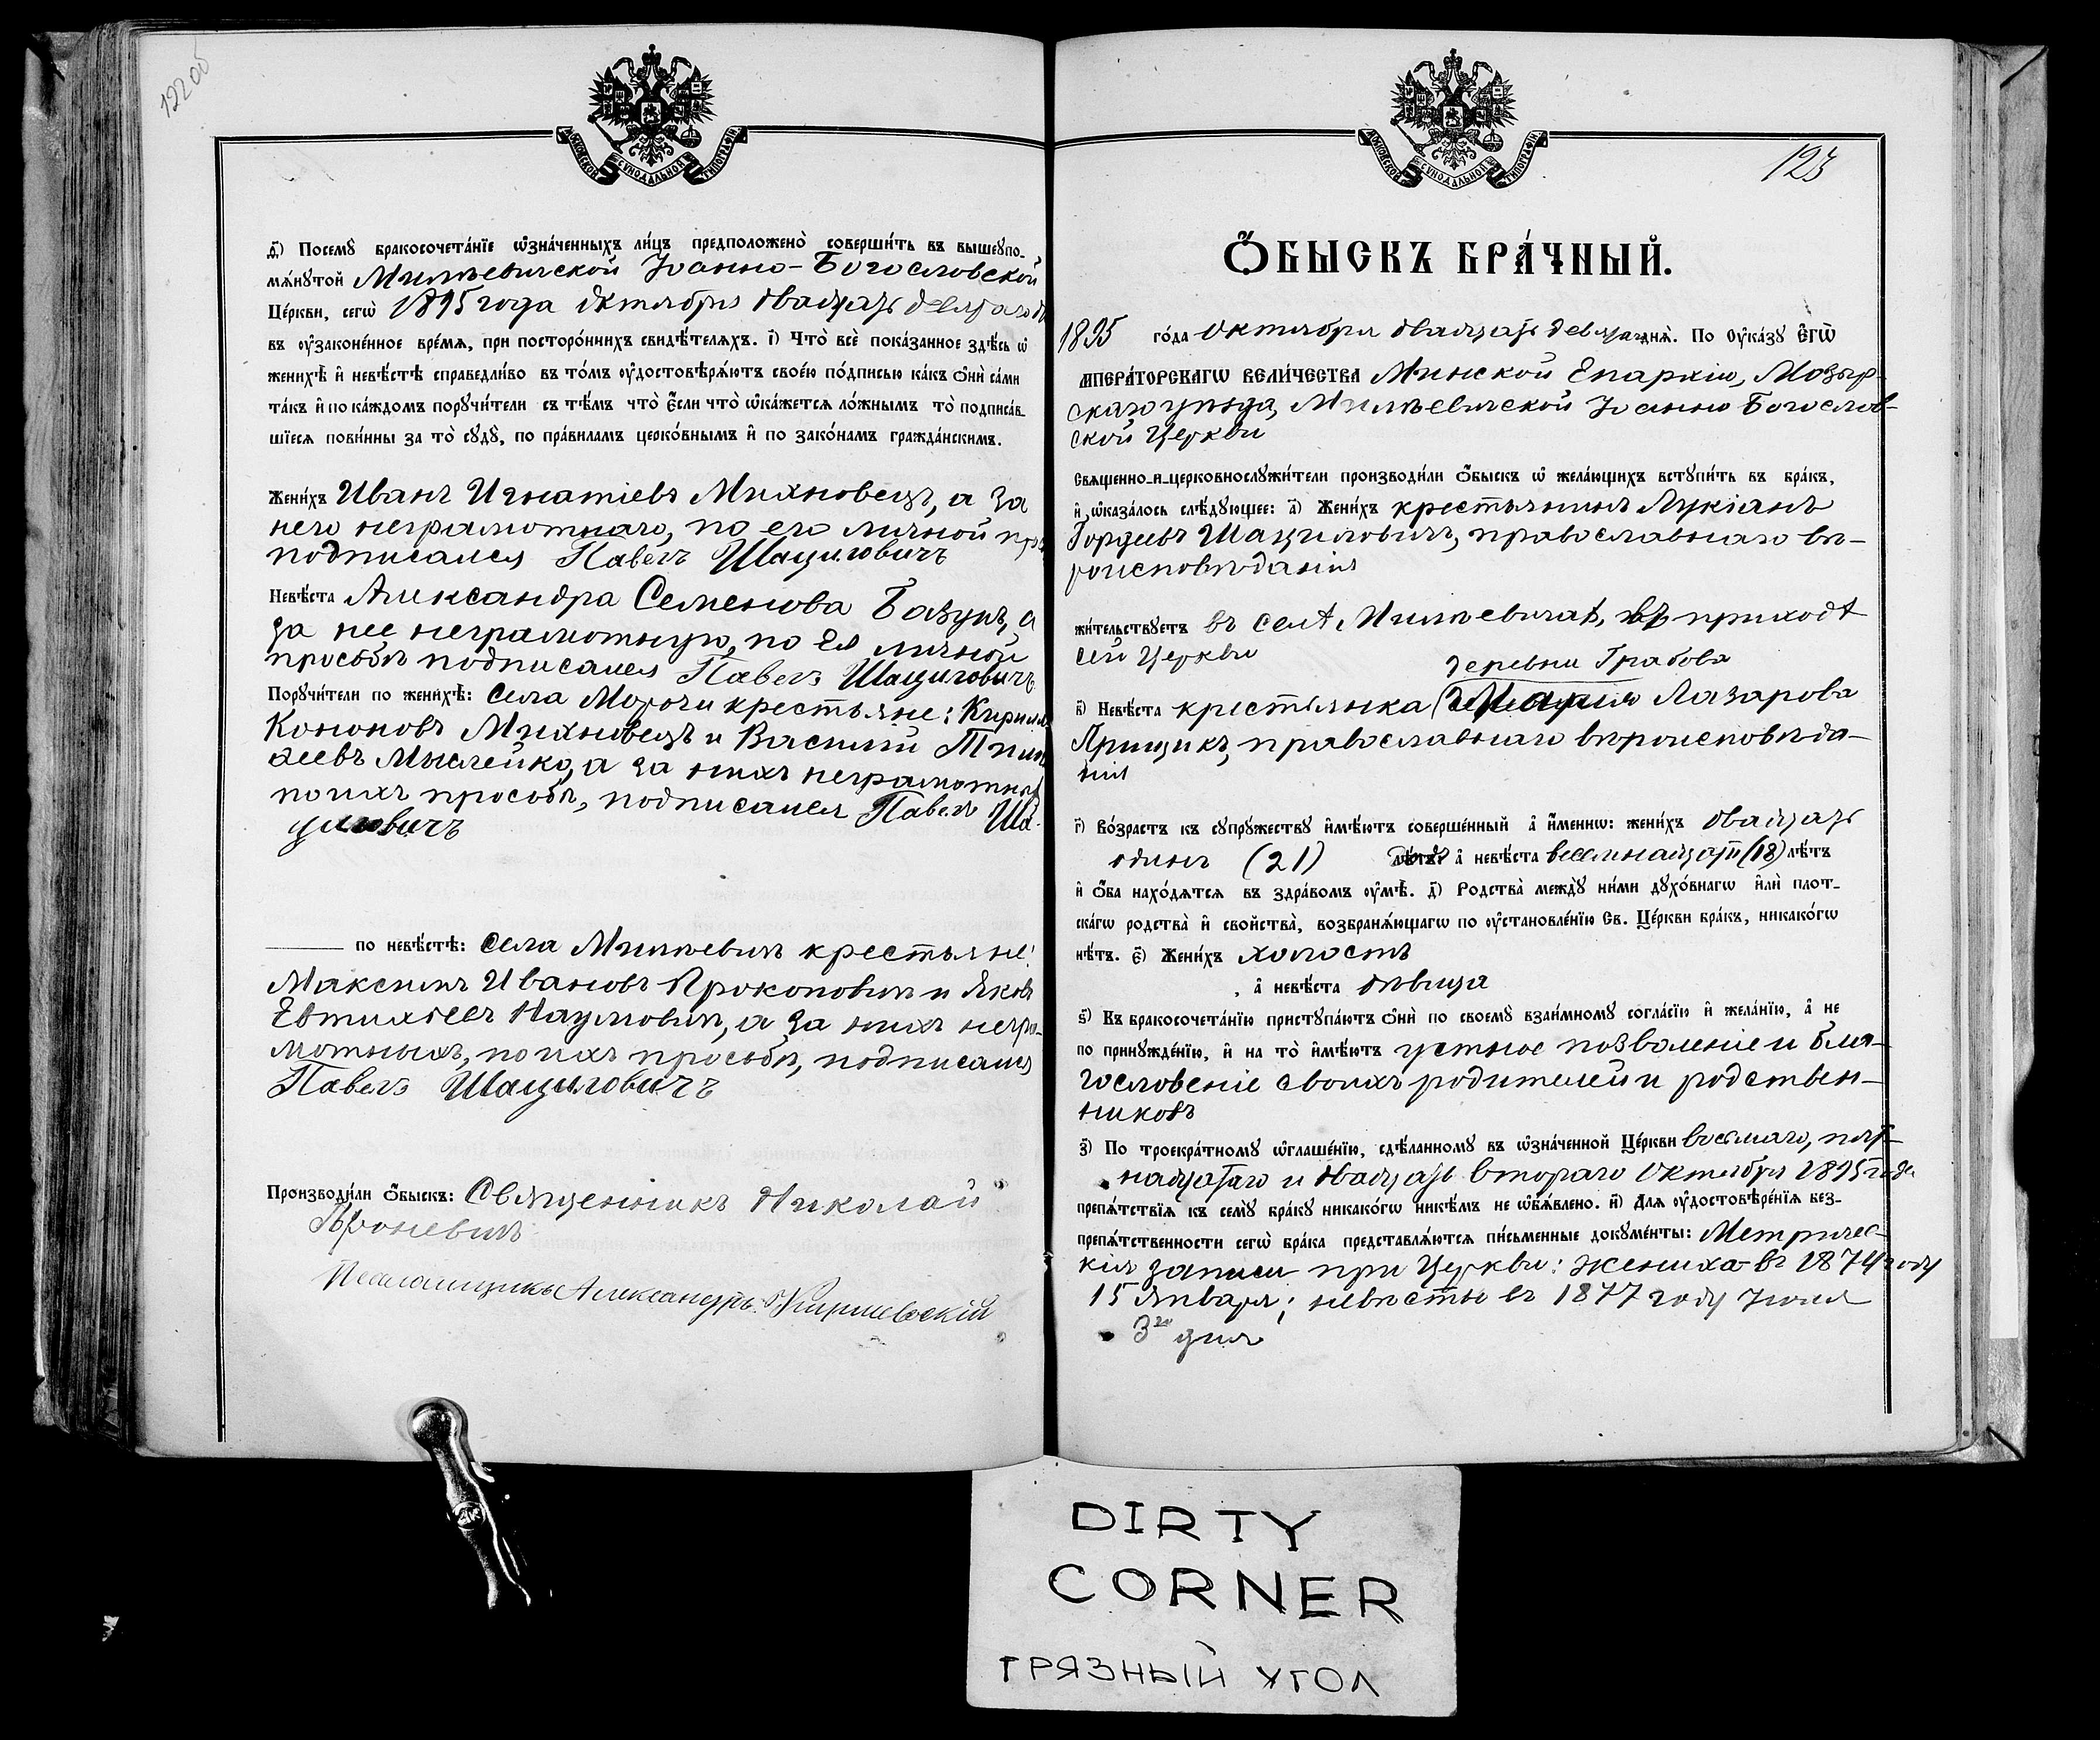 122 об
МОСКОВСКОЙ СѴНОДАЛЬНОЙ ТИПОГРАФІИ
д҃) Посемꙋ бракосочета́нїе ѡ҆зна́ченныхъ ли́цъ предположено̀ соверши́ть въ вышеꙋпо-
мѧ́нꙋтой Милевичской Іоанно-Богословской
Це́ркви, сегѡ̀ 1895 года Октября двадцать девятаго
въ ᲂу҆законе́нное вре́мѧ, при посторо́ннихъ свидѣ́телѧхъ. і҃) Что̀ всѐ пока́занное здѣ́сь ѡ҆
женихѣ̀ и҆ невѣ́стѣ справедли́во въ то́мъ ᲂу҆достовѣрѧ́ютъ свое́ю по́дписью ка́къ ѻ҆нѝ са́ми
та́къ и҆ по ка́ждомъ порꙋчи́тели съ тѣ́мъ что̀ є҆́сли что̀ ѡ҆ка́жетсѧ ло́жнымъ то̀ подписа́в-
шїесѧ пови́нны за то̀ сꙋдꙋ̀, по пра́виламъ церко́внымъ и҆ по зако́намъ гражда́нскимъ.
Жени́хъ Иванъ Игнатіевъ Михновецъ, а за
него неграмотнаго, по его личной
подписался Павелъ Шацыловичъ
Невѣ́ста Александра Семенова Базунъ, а
за нее неграмотную, по ея личной
просьбѣ подписался Павелъ Шацыловичъ
Порꙋчи́тели по женихѣ̀: села Морочи крестьяне: Кирилл
Кононовъ Михновецъ и Василій
Мыслейко, а за нихъ неграмотныхъ
по ихъ просьбѣ, подписался Павелъ Ша-
цыловичъ
по невѣ́стѣ: села Милевичъ крестьяне:
Максимъ Ивановъ Прокоповичъ и Яковъ
Евтихіевъ Наумовичъ, а за нихъ негра-
мотныхъ, по ихъ просьбѣ, подписался
Павелъ Шацыловичъ
Производи́ли ѻ҆́быскъ: Священникъ Николай
Кроневичъ
Псаломщикъ Александръ
МОСКОВСКОЙ СѴНОДАЛЬНОЙ ТИПОГРАФІИ
123
Ѻ҆́БЫСКЪ БРА́ЧНЫЙ.
1895 го́да Октября двадцать девятаго днѧ̀. По ᲂу҆ка́зꙋ Є҆гѡ̀
и҆мпера́торскагѡ вели́чества Минской Епархіи, Мозыр-
скаго уѣзда, Милевичской Іоанно Богослов-
ской Церкви
свѧщенно-и-церковнослꙋжи́тели производи́ли ѻ҆́быскъ ѡ҆ жела́ющихъ встꙋпи́ть въ бра́къ,
и҆ ѡ҆каза́лось слѣ́дꙋющее: а҃) Жени́хъ крестьянинъ Лукіанъ
Гордѣевъ Шацыловичъ, православнаго вѣ-
роисповѣданія
жи́тельствꙋетъ въ селѣ Милевичахъ, въ приходѣ
сей Церкви
деревни Грабова
в҃) Невѣ́ста крестьянка Марія Лазарова
Прищикъ, православнаго вѣроисповѣда-
нія
г҃) Во́зрастъ къ сꙋпрꙋжествꙋ и҆мѣ́ютъ соверше́нный а҆ и҆́меннѡ: жени́хъ двадцать
одинъ (21) лѣ́тъ: а҆ невѣ́ста восемнадцати (18) лѣ́тъ
и҆ ѻ҆́ба нахо́дѧтсѧ въ здра́вомъ ᲂу҆мѣ̀. д҃) Родства̀ междꙋ̀ ни́ми дꙋхо́внагѡ и҆лѝ плот-
ска́гѡ родства̀ и҆ сво́йства̀, возбранѧ́ющагѡ по ᲂу҆становле́нїю Св. Це́ркви бра́къ, никако́гѡ
нѣ́тъ. є҃) Жени́хъ холостъ
а҆ невѣ́ста дѣвица
ѕ҃) Въ бракосочета́нїю пристꙋпа́ютъ ѻ҆нѝ по своемꙋ̀ взаи́мномꙋ согла́сїю и҆ жела́нїю, а҆ не
по принꙋжде́нїю, и҆ на то̀ и҆мѣ́ютъ устное позволеніе и бла-
гословеніе своихъ родителей и родствен-
никовъ
з҃) По троекра́тномꙋ ѡ҆глаше́нїю, сдѣ́ланномꙋ въ ѡ҆зна́ченной Це́ркви восьмаго, пят-
надцатаго и двадцать втораго Октября 1895 года
препѧ́тствїѧ къ семꙋ̀ бра́кꙋ никако́гѡ никѣ́мъ не ѡ҆б̾ѧ́влено. и҃) Для ᲂу҆достовѣре́нїѧ без-
препѧ́тственности сегѡ̀ бра́ка представлѧ́ютсѧ пи́сьменные докꙋме́нты: Метричес-
кія записи при Церкви: жениха въ 1874 году
15 Января; невѣсты въ 1877 году Іюля
3го дня
DIRTY
CORNER
ГРЯЗНЫЙ УГОЛ